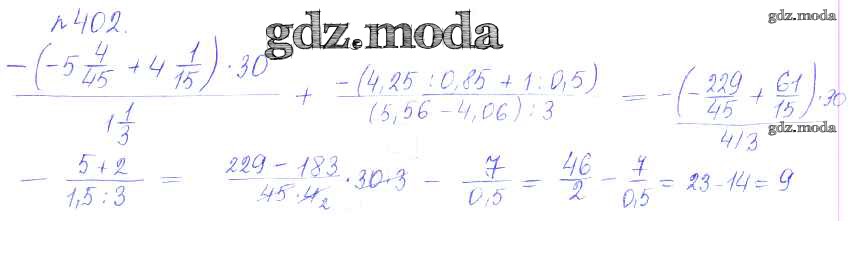 №402.
gdz.moda
gdz.moda
(-(-5 4/45 + 4 1/15) · 30) / (1 1/3) + (-(4,25 : 0,85 + 1 : 0,5)) / ((5,56 - 4,06) : 3) = (-(-229/45 + 61/15) · 30) / (4/3)
gdz.moda
- (5+2)/(1,5:3) = (229 - 183)/(45 · 4 2) · 30 · 3 - 7/0,5 = 46/2 - 7/0,5 = 23 - 14 = 9